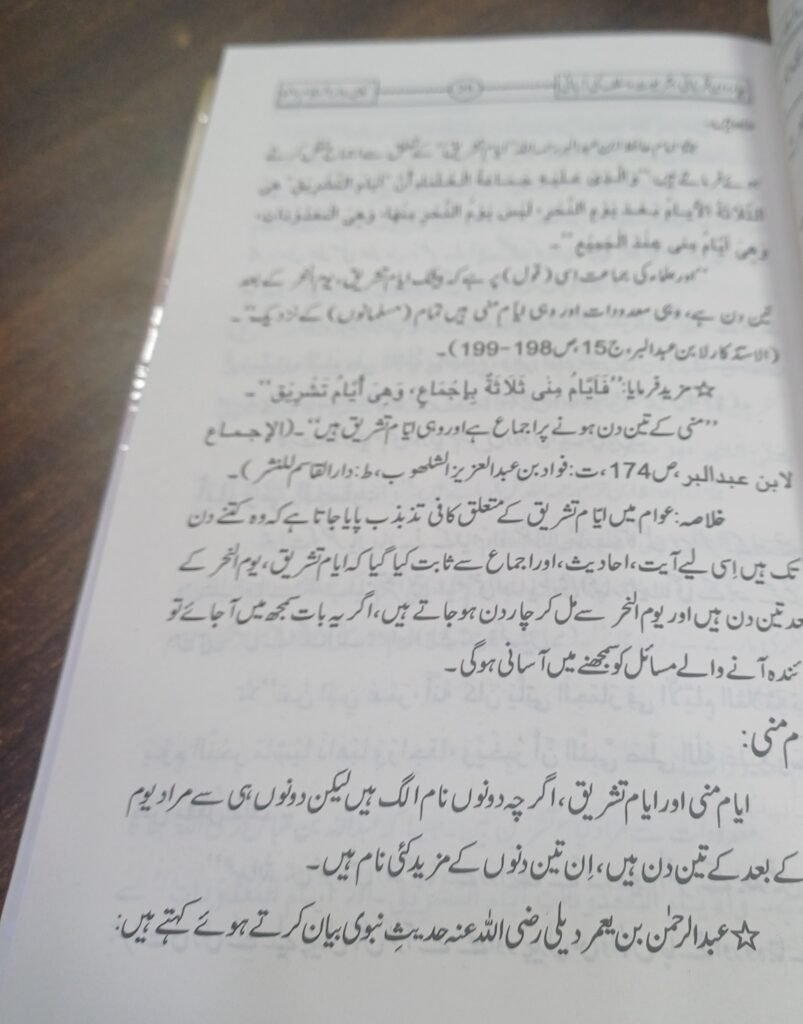 امام حافظ ابن عبدالبر رحمہ اللہ ”ایام تشریق“ کے متعلق سے اجماع نقل کرتے
ہوئے فرماتے ہیں: ”وَالَّذِی عَلَیْهِ جَمَاعَةُ الْعُلَمَاءِ أَنَّ أَیَّامَ التَّشْرِیْقِ هِیَ
الثَّلَاثَةُ الْأَیَّامِ بَعْدَ یَوْمِ النَّحْرِ، لَیْسَ یَوْمُ النَّحْرِ مِنْهَا، وَهِیَ الْمَعْدُوْدَاتُ،
وَهِیَ أَیَّامُ مِنٰی عِنْدَ الْجَمِیْعِ“۔
”اور علماء کی جماعت اسی (قول) پر ہے کہ بیشک ایام تشریق، یوم النحر کے بعد
تین دن ہے، وہی معدودات اور وہی ایام منٰی ہیں تمام (مسلمانوں) کے نزدیک“۔
(الاستذکار لابن عبدالبر، ج15، ص198-199)۔
☆ مزید فرمایا: ”فَأَیَّامُ مِنٰی ثَلَاثَةٌ بِإِجْمَاعٍ، وَهِیَ أَیَّامُ تَشْرِیْقٍ“۔
”منٰی کے تین دن ہونے پر اجماع ہے اور وہی ایام تشریق ہیں“۔ (الإجماع
لابن عبدالبر، ص174، ت: فواد بن عبدالعزیز الشلھوب، ط: دار القاسم للنشر)۔
خلاصہ: عوام میں ایام تشریق کے متعلق کافی تذبذب پایا جاتا ہے کہ وہ کتنے دن
تک ہیں اِسی لیے آیت، احادیث، اور اجماع سے ثابت کیا گیا کہ ایام تشریق، یوم النحر کے
عد تین دن ہیں اور یوم النحر سے مل کر چار دن ہو جاتے ہیں، اگر یہ بات سمجھ میں آ جائے تو
ئندہ آنے والے مسائل کو سمجھنے میں آسانی ہوگی۔
م منٰی:
ایام منٰی اور ایام تشریق، اگرچہ دونوں نام الگ ہیں لیکن دونوں ہی سے مراد یوم
کے بعد کے تین دن ہیں، اِن تین دنوں کے مزید کئی نام ہیں۔
☆ عبدالرحمٰن بن یعمر دیلی رضی اللہ عنہ حدیثِ نبوی بیان کرتے ہوئے کہتے ہیں: